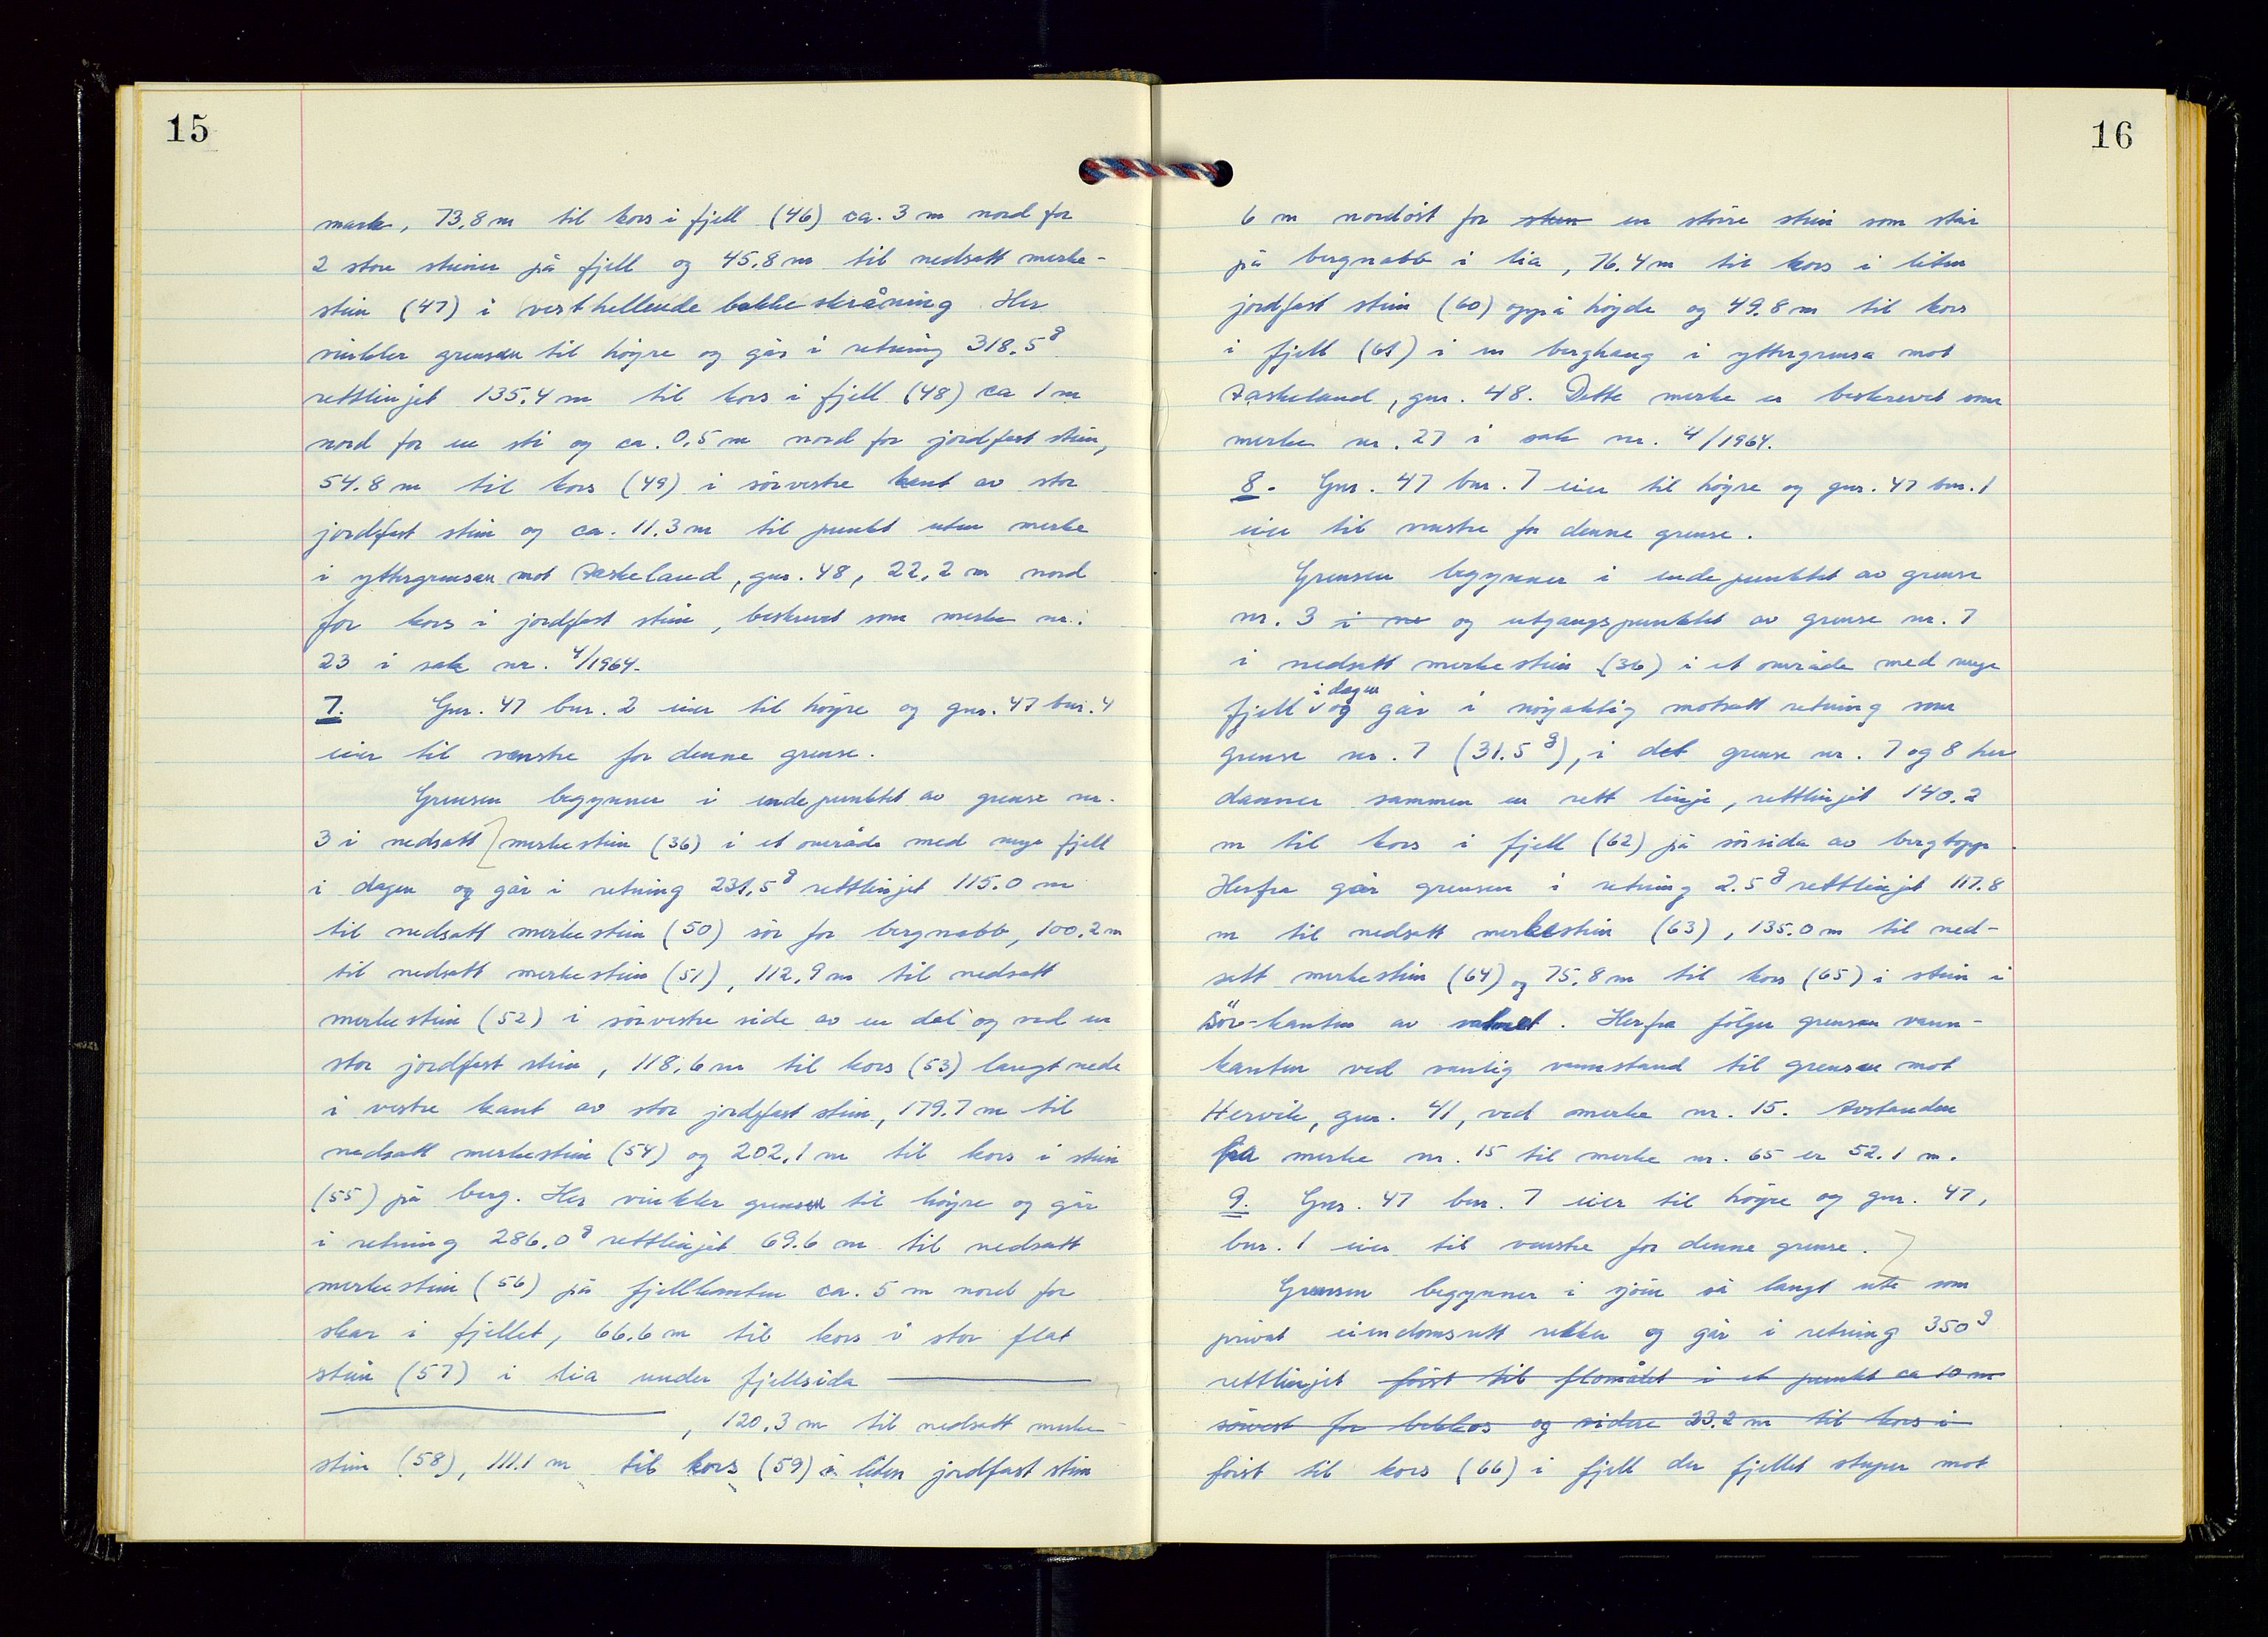 15
mark, 73,8 m til kors i fjell (46) ca. 3 m nord for
2 store steiner på fjell og 45,8 m til nedsatt merke-
stein (47) i vesthellende bakkeskråning Her
vinkler grensen til høyre og går i retning 318.5g
rettlinjet 135,4 m til kors i fjell (48) ca 1 m
nord for en sti og ca. 0,5 m nord for jordfast stein,
54.8 m til kors (49) i sørvestre kant av stor
jordfast stein og ca. 11.3 m til punkt uten merke
i yttergrensen mot Askeland, gnr. 48, 22,2 m nord
for kors i jordfast stein, beskrevet som merke nr.
23 i sak nr. 4/1964.
7. Gnr. 47 bnr. 2 eier til høyre og gnr. 47 bnr. 4
eier til venstre for denne grense.
Grensen begynner i endepunktet av grense nr.
3 i nedsatt merkestein (36) i et område med mye fjell
i dagen og går i retning 231,5g rettlinjet 115.0 m
til nedsatt merkestein (50) sør for bergnabb, 100.2 m
til nedsatt merkestein (51), 112,9 m til nedsatt
merkestein (52) i sørvestre side av en dal og ved en
stor jordfast stein, 118,6 m til kors (53) langt nede
i vestre kant av stor jordfast stein, 179.7 m til
nedsatt merkestein (54) og 202,1 m til kors i stein
(55) på berg. Her vinkler grensen til høyre og går
i retning 286.0g rettlinjet 69.6 m til nedsatt
merkestein (56) på fjellkanten ca. 5 m nord for
skar i fjellet, 66.6 m til kors i stor flat
stein (57) i lia under fjellsida
, 120.3 m til nedsatt merke-
stein (58), 111.1 m til kors (59) i liten jordfast stein
16
6 m nordøst for sten en større stein som står
på bergnabb i lia, 76.4 m til kors i liten
jordfast stein (60) oppå høyde og 49.8 m til kors
i fjell (61) i en berghaug i yttergrensa mot
Askeland, gnr. 48. Dette merke er beskrevet som
merke nr. 27 i sak nr. 4/1964.
8. Gnr. 47 bnr. 7 eier til høyre og gnr. 47 bnr. 1
eier til venstre for denne grense.
Grensen begynner i endepunktet av grense
nr. 3 i ne og utgangspunktet av grense nr. 7
i nedsatt merkestein (36) i et område med mye
fjell i dagen og går i nøyaktig motsatt retning som
grense nr. 7 (31.5g), i det grense nr. 7 og 8 her
danner sammen en rett linje, rettlinjet 140.2
m til kors i fjell (62) på sørsida av bergtopp.
Herfra går grensen i retning 2.5g rettlinjet 117.8
m til nedsatt merkestein (63), 135.0 m til ned-
satt merkestein (64) og 75.8 m til kors (65) i stein i
sør-kanten av vatnet. Herfra følger grensen vann-
kanten ved vanlig vannstand til grensen mot
Hervik, gnr. 41, ved merke nr. 15. Avstanden
fra merke nr. 15 til merke nr. 65 er 52.1 m.
9. Gnr. 47 bnr. 7 eier til høyre og gnr. 47,
bnr. 1 eier til venstre for denne grense.
Grensen begynner i sjøen så langt ute som
privat eiendomsrett rekker og går i retning 350g
rettlinjet først til flomålet i et punkt ca 10 m
sørvest for bekkos og videre 23.2 m til kors i
først til kors (66) i fjell der fjellet stuper mot